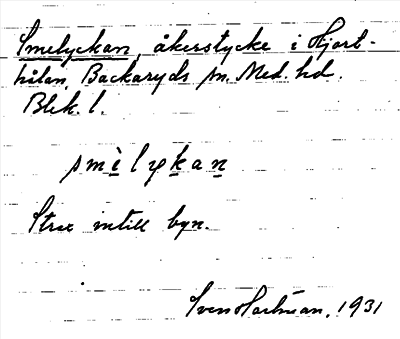 Smelyckan, åkerstycke i Hjort-
hålan, Backaryds sn. Med. hd.
Blek. l.
smèlykan
Strax intill byn.
Sven Hartman, 1931